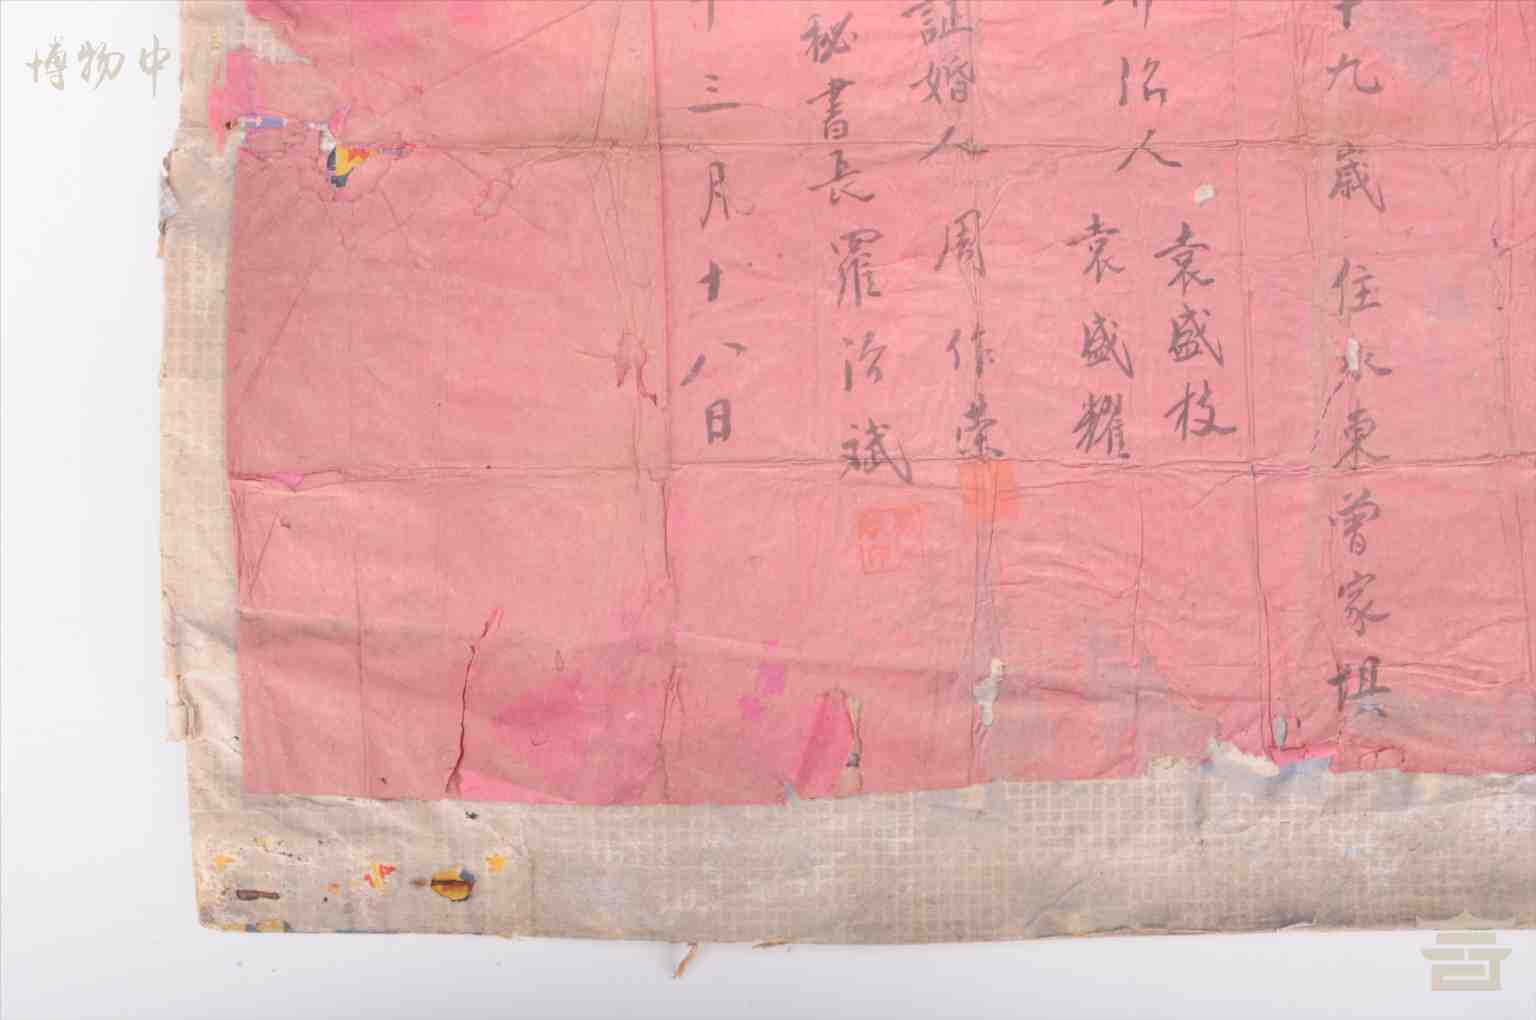 十九歲住水東曾家垻
介紹人 袁盛枝
袁盛耀
証婚人 周作荣
秘書長羅治斌
三月十八日
博物中